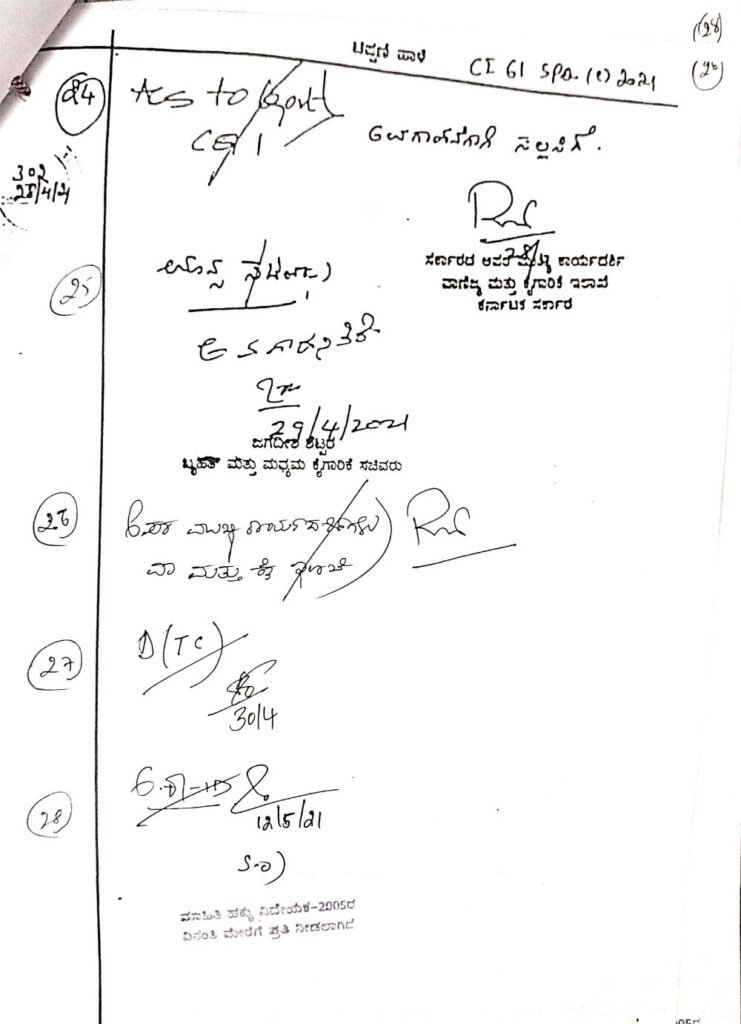 (28)
ಟಿಪ್ಪಣಿ ಹಾಳೆ
CI 61 SPQ (e) 2021
(26)
24
ACS to Govt
C&I
ಅವಗಾಹನೆಗಾಗಿ ಸಲ್ಲಿಸಿದೆ.
302
28/4/21
28/4
ಸರ್ಕಾರದ ಅಪರ ಮುಖ್ಯ ಕಾರ್ಯದರ್ಶಿ
ವಾಣಿಜ್ಯ ಮತ್ತು ಕೈಗಾರಿಕೆ ಇಲಾಖೆ
ಕರ್ನಾಟಕ ಸರ್ಕಾರ
25
ಮಾನ್ಯ ಸಚಿವರು
ಅವಗಾಹಿಸಿದೆ
29/4/2021
ಜಗದೀಶ ಶೆಟ್ಟರ
ಬೃಹತ್ ಮತ್ತು ಮಧ್ಯಮ ಕೈಗಾರಿಕೆ ಸಚಿವರು
26
ಅಪರ ಮುಖ್ಯ ಕಾರ್ಯದರ್ಶಿಗಳು
ವಾ ಮತ್ತು ಕೈ ಇಲಾಖೆ
27
D(TC)
30/4
28
12/5/21
ಮಾಹಿತಿ ಹಕ್ಕು ವಿಧೇಯಕ-2005ರ
ವಿನಂತಿ ಮೇರೆಗೆ ಪ್ರತಿ ನೀಡಲಾಗಿದೆ
005ರ